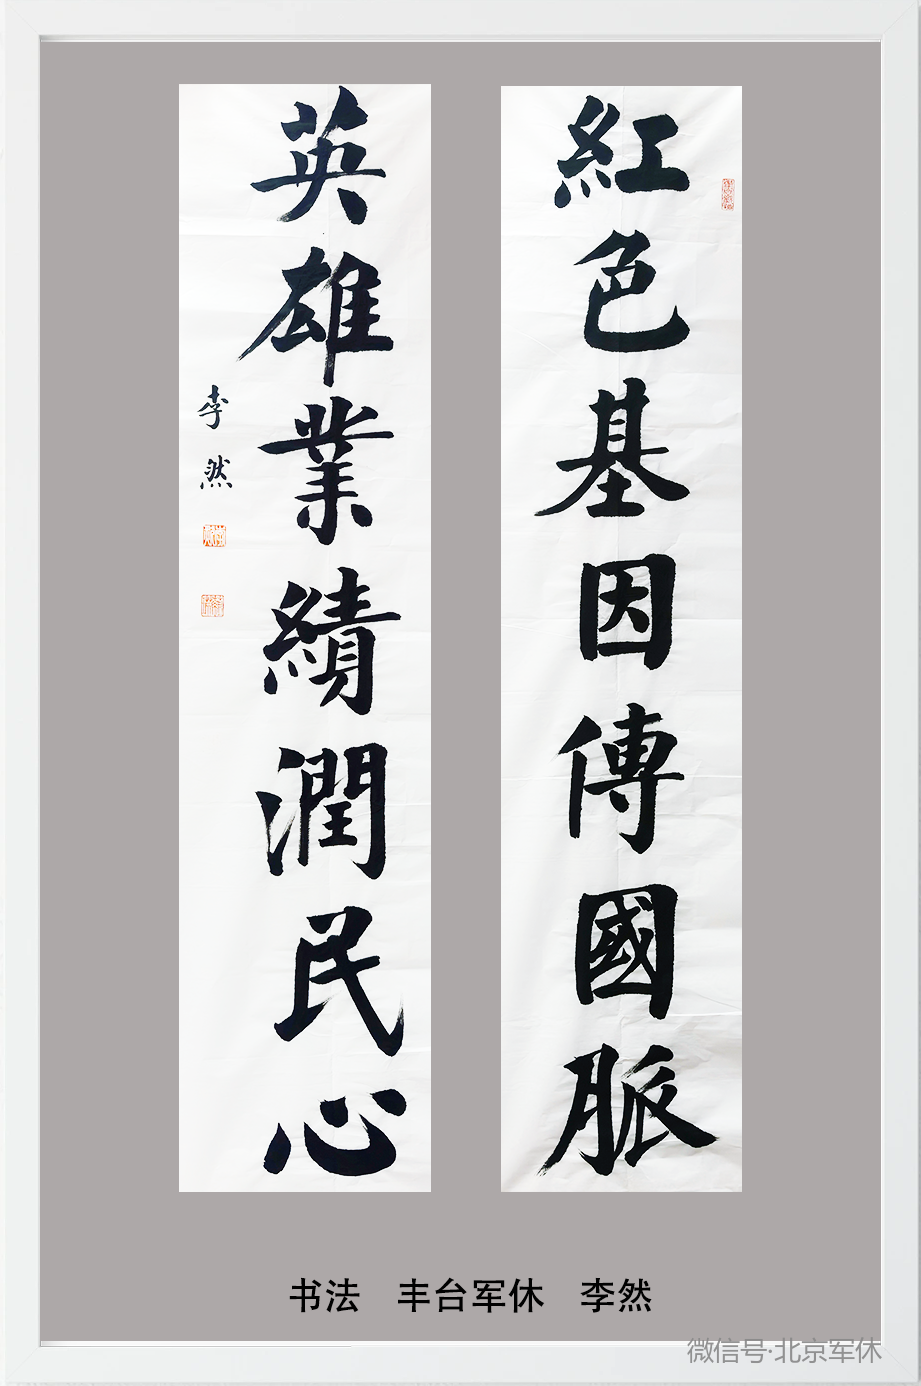 紅色基因傳國脈
英雄業績潤民心
李然
书法 丰台军休 李然
微信号·北京军休